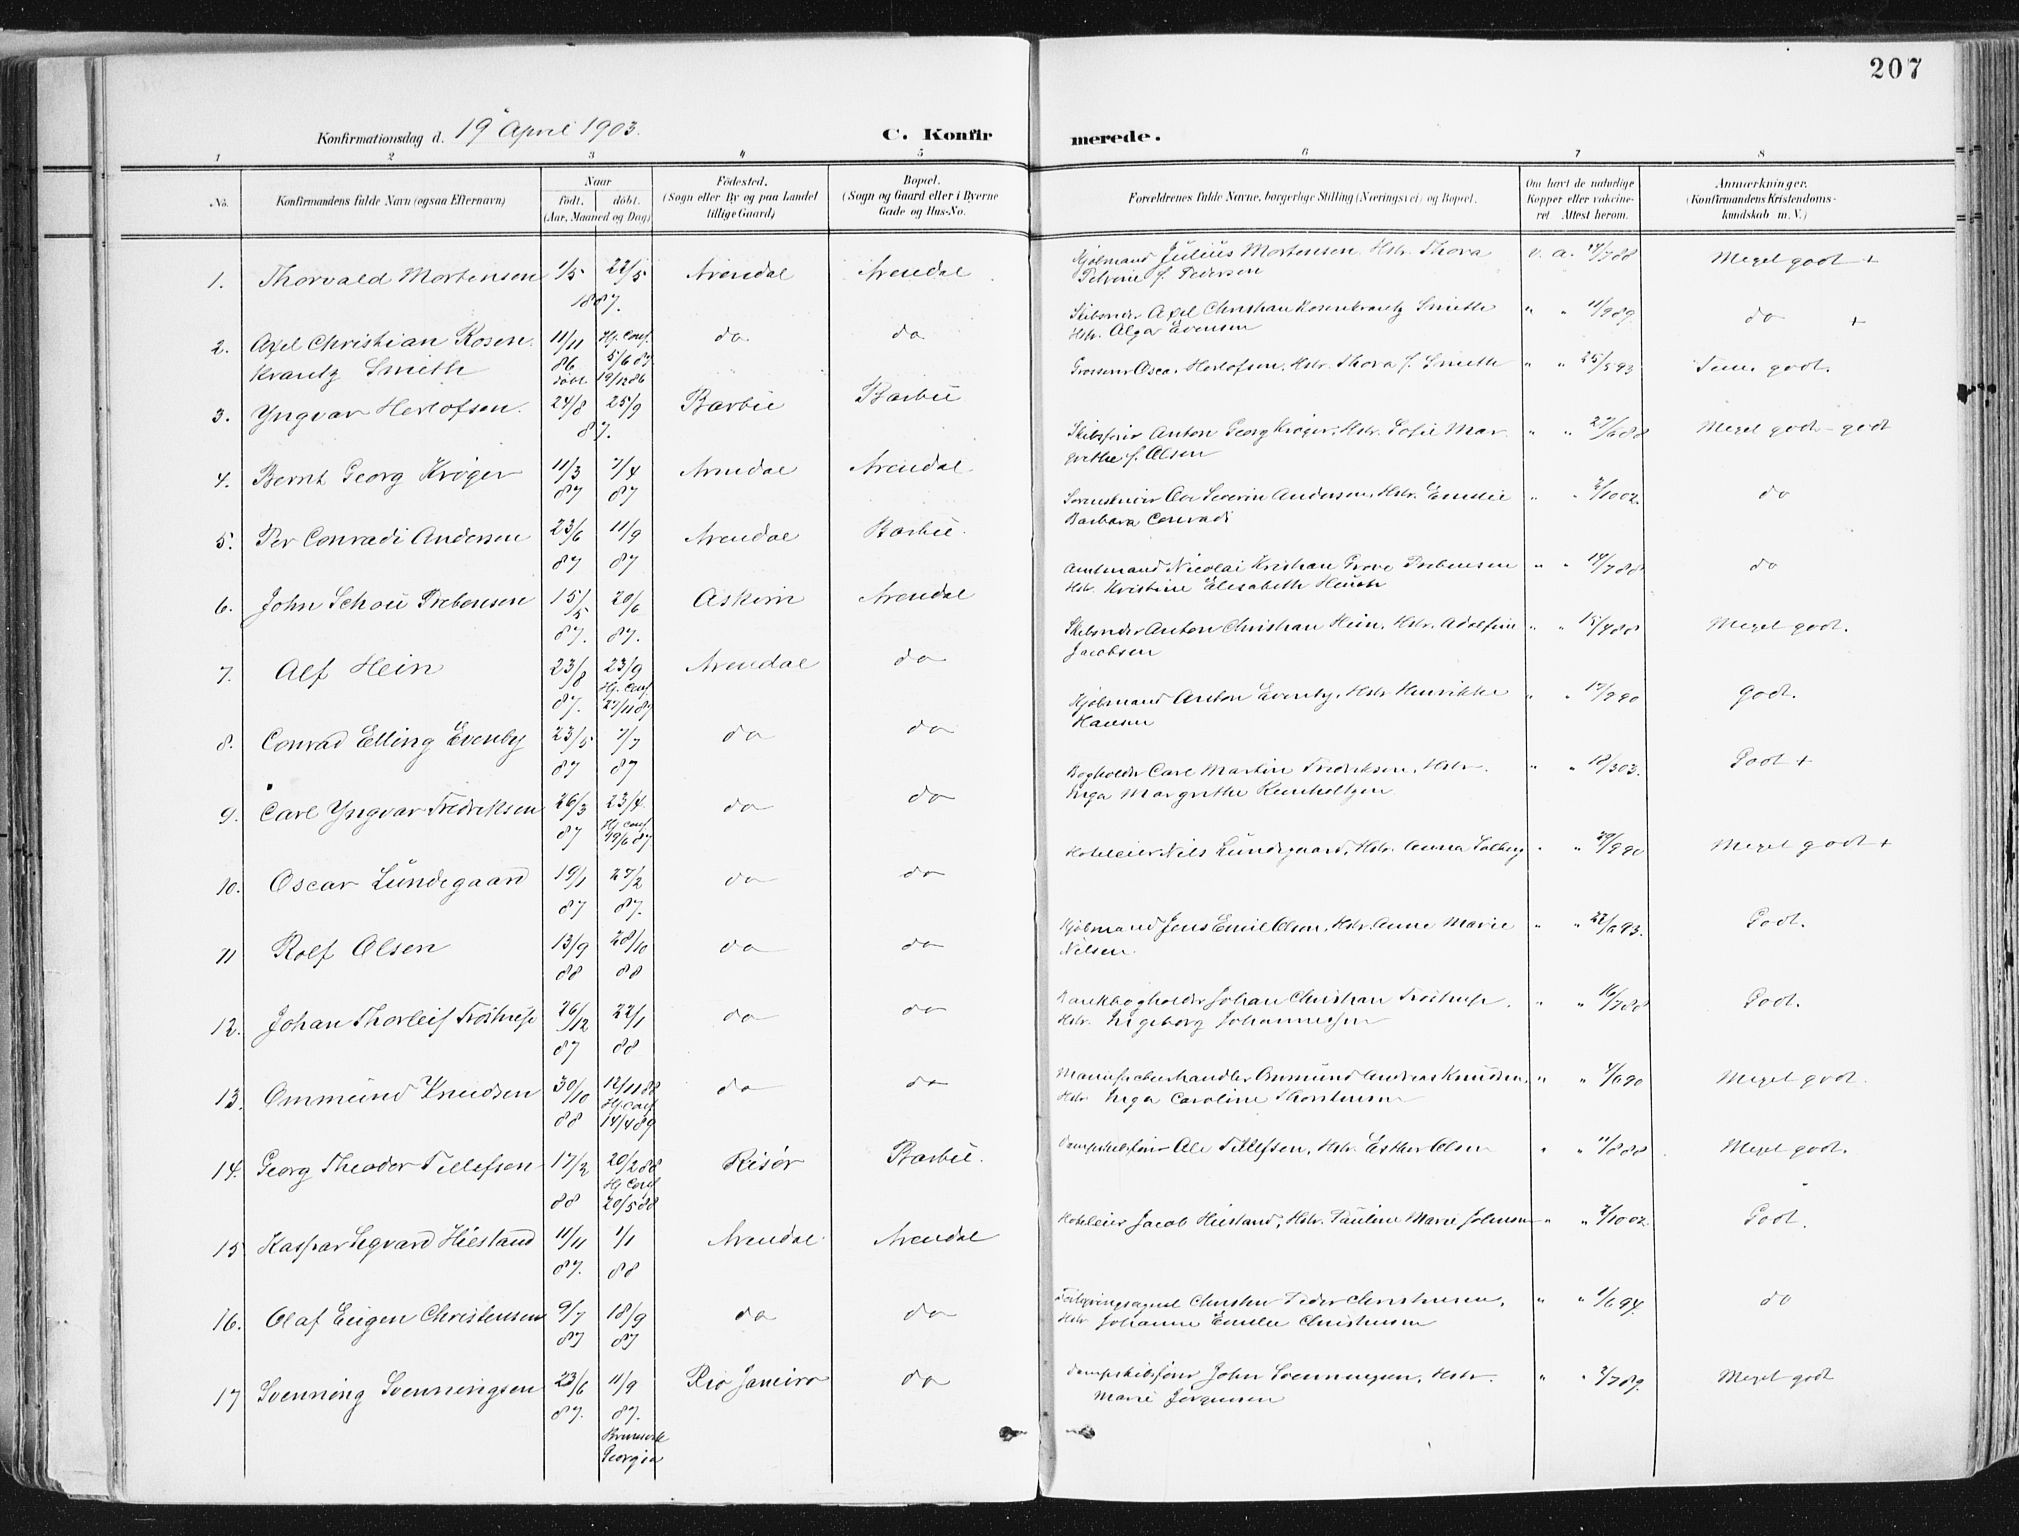 207
Konfirmationsdag d. 19 April 1903.
C. Konfirmerede.
1 2 3 4 5 6 7 8
No. Konfirmandens fulde Navn (ogsaa Efternavn) Naar født. døbt. (Aar, Maaned og Dag) Fødested. (Sogn eller By og paa Landet tillige Gaard) Bopæl. (Sogn og Gaard eller i Byerne Gade og Hus-No. Forældrenes fulde Navne, borgerlige Stilling (Næringsvei) og Bopæl. Om havt de naturlige Kopper eller vakcineret. Attest herom. Anmærkninger. (Konfirmandens Kristendomskundskab m. V.)
1. Thorvald Mortensen 1/5 22/5 1887. Arendal Arendal Kjøbmand Julius Mortensen Hstr. Thora
f. Pedersen v. a. 14/7 88 Meget godt +
2. Axel Christian Rosen 11/11 86 Hj. conf. 5/6 87 do do Skibsreder Axel Christian Rosenkrantz Smith
Krantz Smith døbt 19/12 86 Hstr. Alga Evensen " " 11/9 89. do +
3. Yngvar Herlofsen. 24/8 25/9 87. Barbu Barbu Grosserer Oscar Herlofsen, Hstr. Thora f. Smith " " 25/5 93 godt.
4. Bernt Georg Krøger 11/3 87 7/4 87 Arendal Arendal Skibsfører Anton Georg Krøger, Hstr. Sofie Mar
grethe f. Olsen " " 27/6 88 Meget godt - godt
5. Per Conradi Andersen 23/6 87 11/9 87 Arendal Barbu. Severin Andersen, Hstr. Emilie
Barbara Conradi " " 2/10 02. do
6. John Schou Prebensen 15/5 87. 20/6 87. Askim Arendal Amtmand Nicolai Kristian Grove Prebensen
Hstr. Kristine Elisabeth Heuch " " 14/7 88 do
7. Alf Hein 23/8 87. 23/9 Hj. conf. 27/11 87 Arendal do Skibsreder Anton Christian Hein, Hstr. Adolfine
Jacobsen " " 15/4 88 Meget godt.
8. Conrad Elling Evenby 23/5 87 7/7 87 do do Kjøbmand Anton Evenby, Hstr. Henrikke
Hansen " " 90 Godt.
9. Carl Yngvar Fredriksen 26/3 87 23/4. Hj. conf. 19/6 87 do do Bogholder Carl Martin Fredriksen, Hstr.
Inga Margrethe " " 18/3 03. Godt +
10. Oscar Lundegaard 19/1 87 27/2 87. do do Hoteleier Nils Lundegaard, Hstr. Anna Solberg " " 29/9 90 Meget godt +
11 Rolf Olsen 13/9 88 28/10 88 do do Kjøbmand Jens Emil Olsen, Hstr. Anne Marie
Nilsen. " " 22/6 93. Godt.
12. Johan Thorleif Trøstrup 26/12 87 22/1 88 do do Bankbogholder Johan Christian Trøstrup,
Hstr. Ingeborg Johannessen " " 16/7 88 Godt.
13. Ommund Knudsen 30/10 88 12/11 88 Hj. conf. 14/4 89 do do Manufacturhandler Ommund Andreas Knudsen,
Hstr. Inga Caroline Thorstensen " " 7/6 90 Meget godt.
14. Georg Theodor Tellefsen 17/2 88 20/2 88 Hj. conf. 20/5 88 Risør Barbu. Dampskibsfører Ole Tellefsen, Hstr. Esther Olsen " " 11/8 88 Meget godt.
15 Kaspar Sigvard Hiestand 11/11 87. 1/1 88 Arendal Arendal Hoteleier Jacob Hiestand, Hstr. Pauline Marie Johnsen " " 2/10 02. Godt.
16. Olaf Eugen Christensen 9/7 87 18/9 87 do do Christen Peder Christensen,
Hstr. Johanne Emilie Christensen " " 1/6 94. do
17 Svenning Svenningsen 23/6 87. 11/9 87. Brunswik Georgia Rio Janeiro do Dampskibsfører John Svenningsen, Hstr.
Marie Jørgensen " " 2/7 89. Meget godt